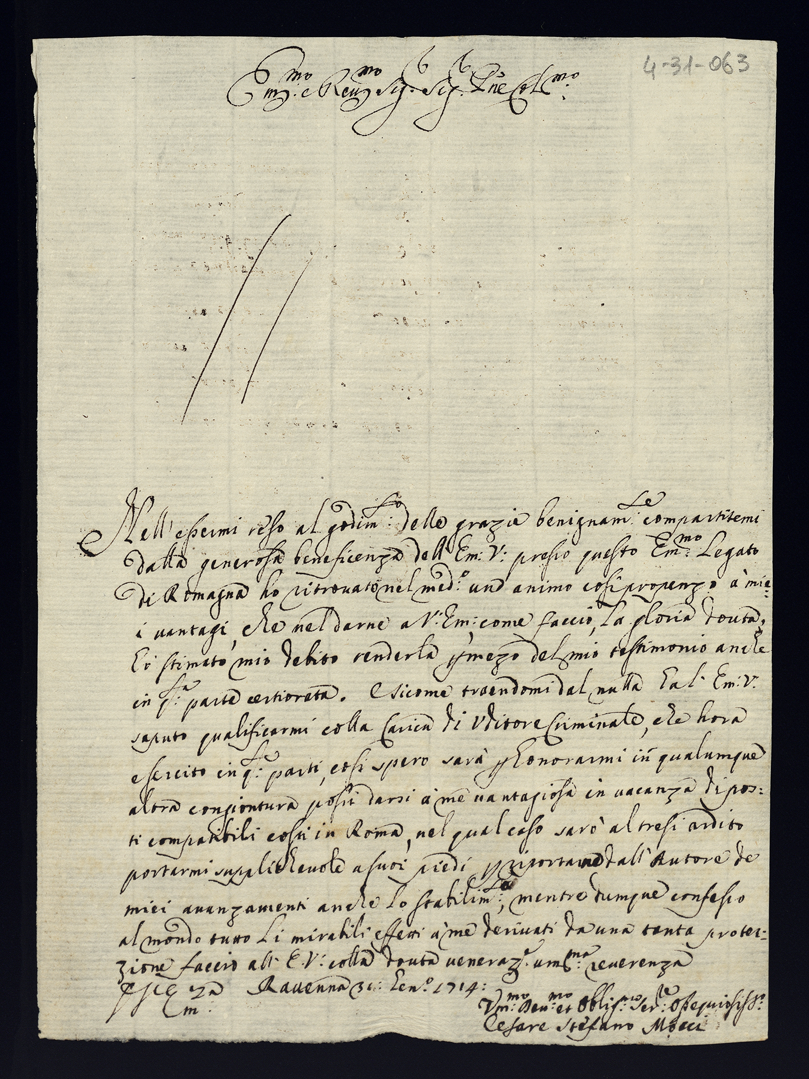 4-31-063
Em:mo e Reu:mo Sig:r Sig:r Pne Col:mo
Nell'essermi reso al godim:to delle grazie benignam:te compartitemi
dalla generosa beneficenza dell'Em: V: presso questo Em:mo Legato
di Romagna ho ritrouato nel med:o un animo così propenzo à mie-
i vantagi, che nel darne a V: Em: come faccio, la gloria douta,
hò stimato mio debito renderla p mezo del mio testimonio anche
in q:ta parte certiorata. E sicome traendomi dal nulla ha l'Em: V:
saputo qualificarmi colla Carica di Uditore Criminale, che hora
esercito in q:te parti, così spero sarà p honorarmi in qualunque
altra congiontura possi darsi à me vantagiosa in vacanza di pos-
ti compatibili costì in Roma, nel qual caso sarò altresi ardito
portarmi supplicheuole a suoi piedi p riportarne dall'Autore de
miei auanzamenti anche lo stabilim:to, mentre dumque confesso
al mondo tutto li mirabili effetti à me deriuati da una tanta protez-
zione faccio all'E: V: colla douta veneraz:e um:ma reuerenza
Ravenna 31: Gen:o 1714:
V:mo Deu:mo et Oblig:mo Ser:re Ossequiosiss:o
Cesare Stefano